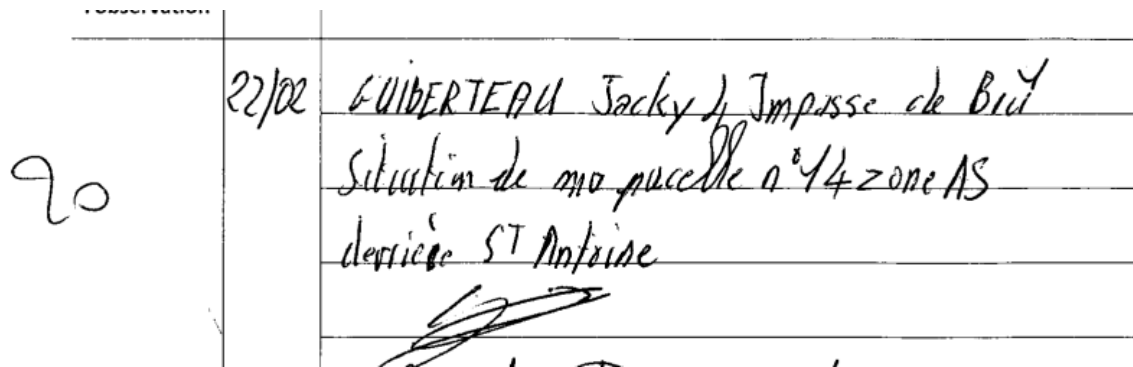 l'observation
22/02 GUIBERTEAU Jacky 4 Impasse de
90 Situation de ma parcelle n°14 zone AS
derrière ST Antoine